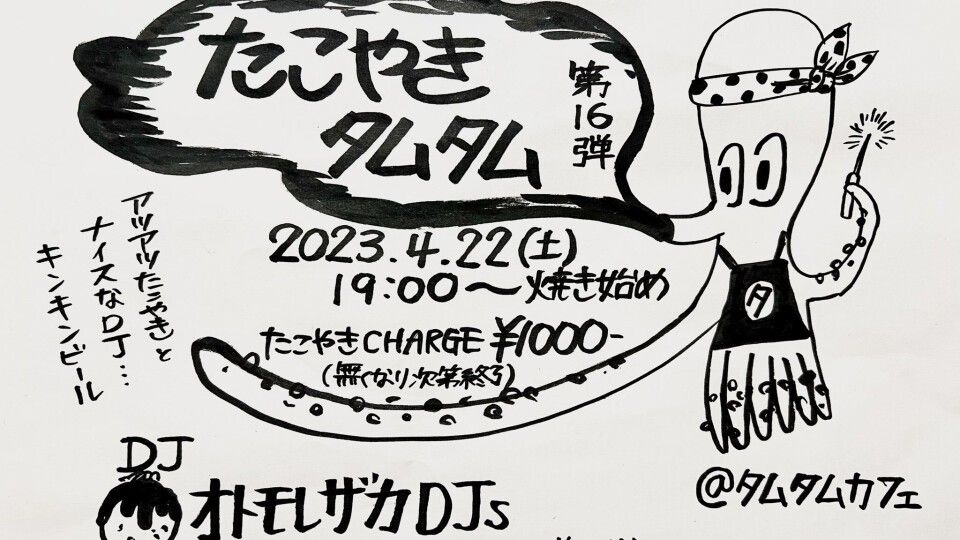 たこやき
タムタム
第16弾
2023.4.22(土)
19:00〜焼き始め
たこやきCHARGE ¥1000-
(無くなり次第終了)
アツアツたこやきと
ナイスなDJ…
キンキンビール
タ
DJ
オトモレザカDJs
@タムタムカフェ